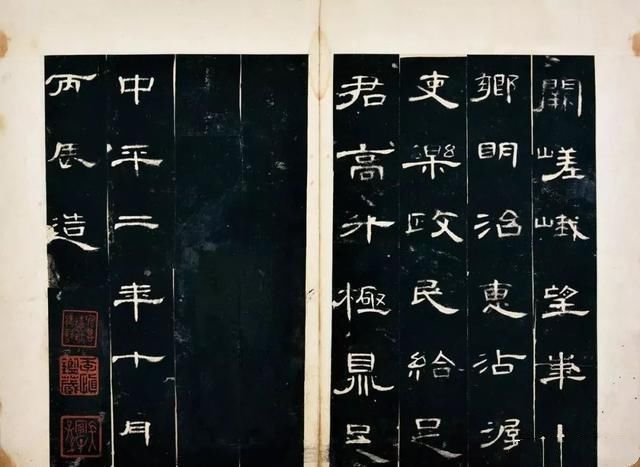 闕嵯峨望華山
鄉明治惠沾渥
吏樂政民給足
君高升極鼎足
中平二年十月
丙辰造